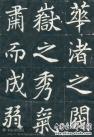 華渚之閒
嶽之秀氣
肅而成弱